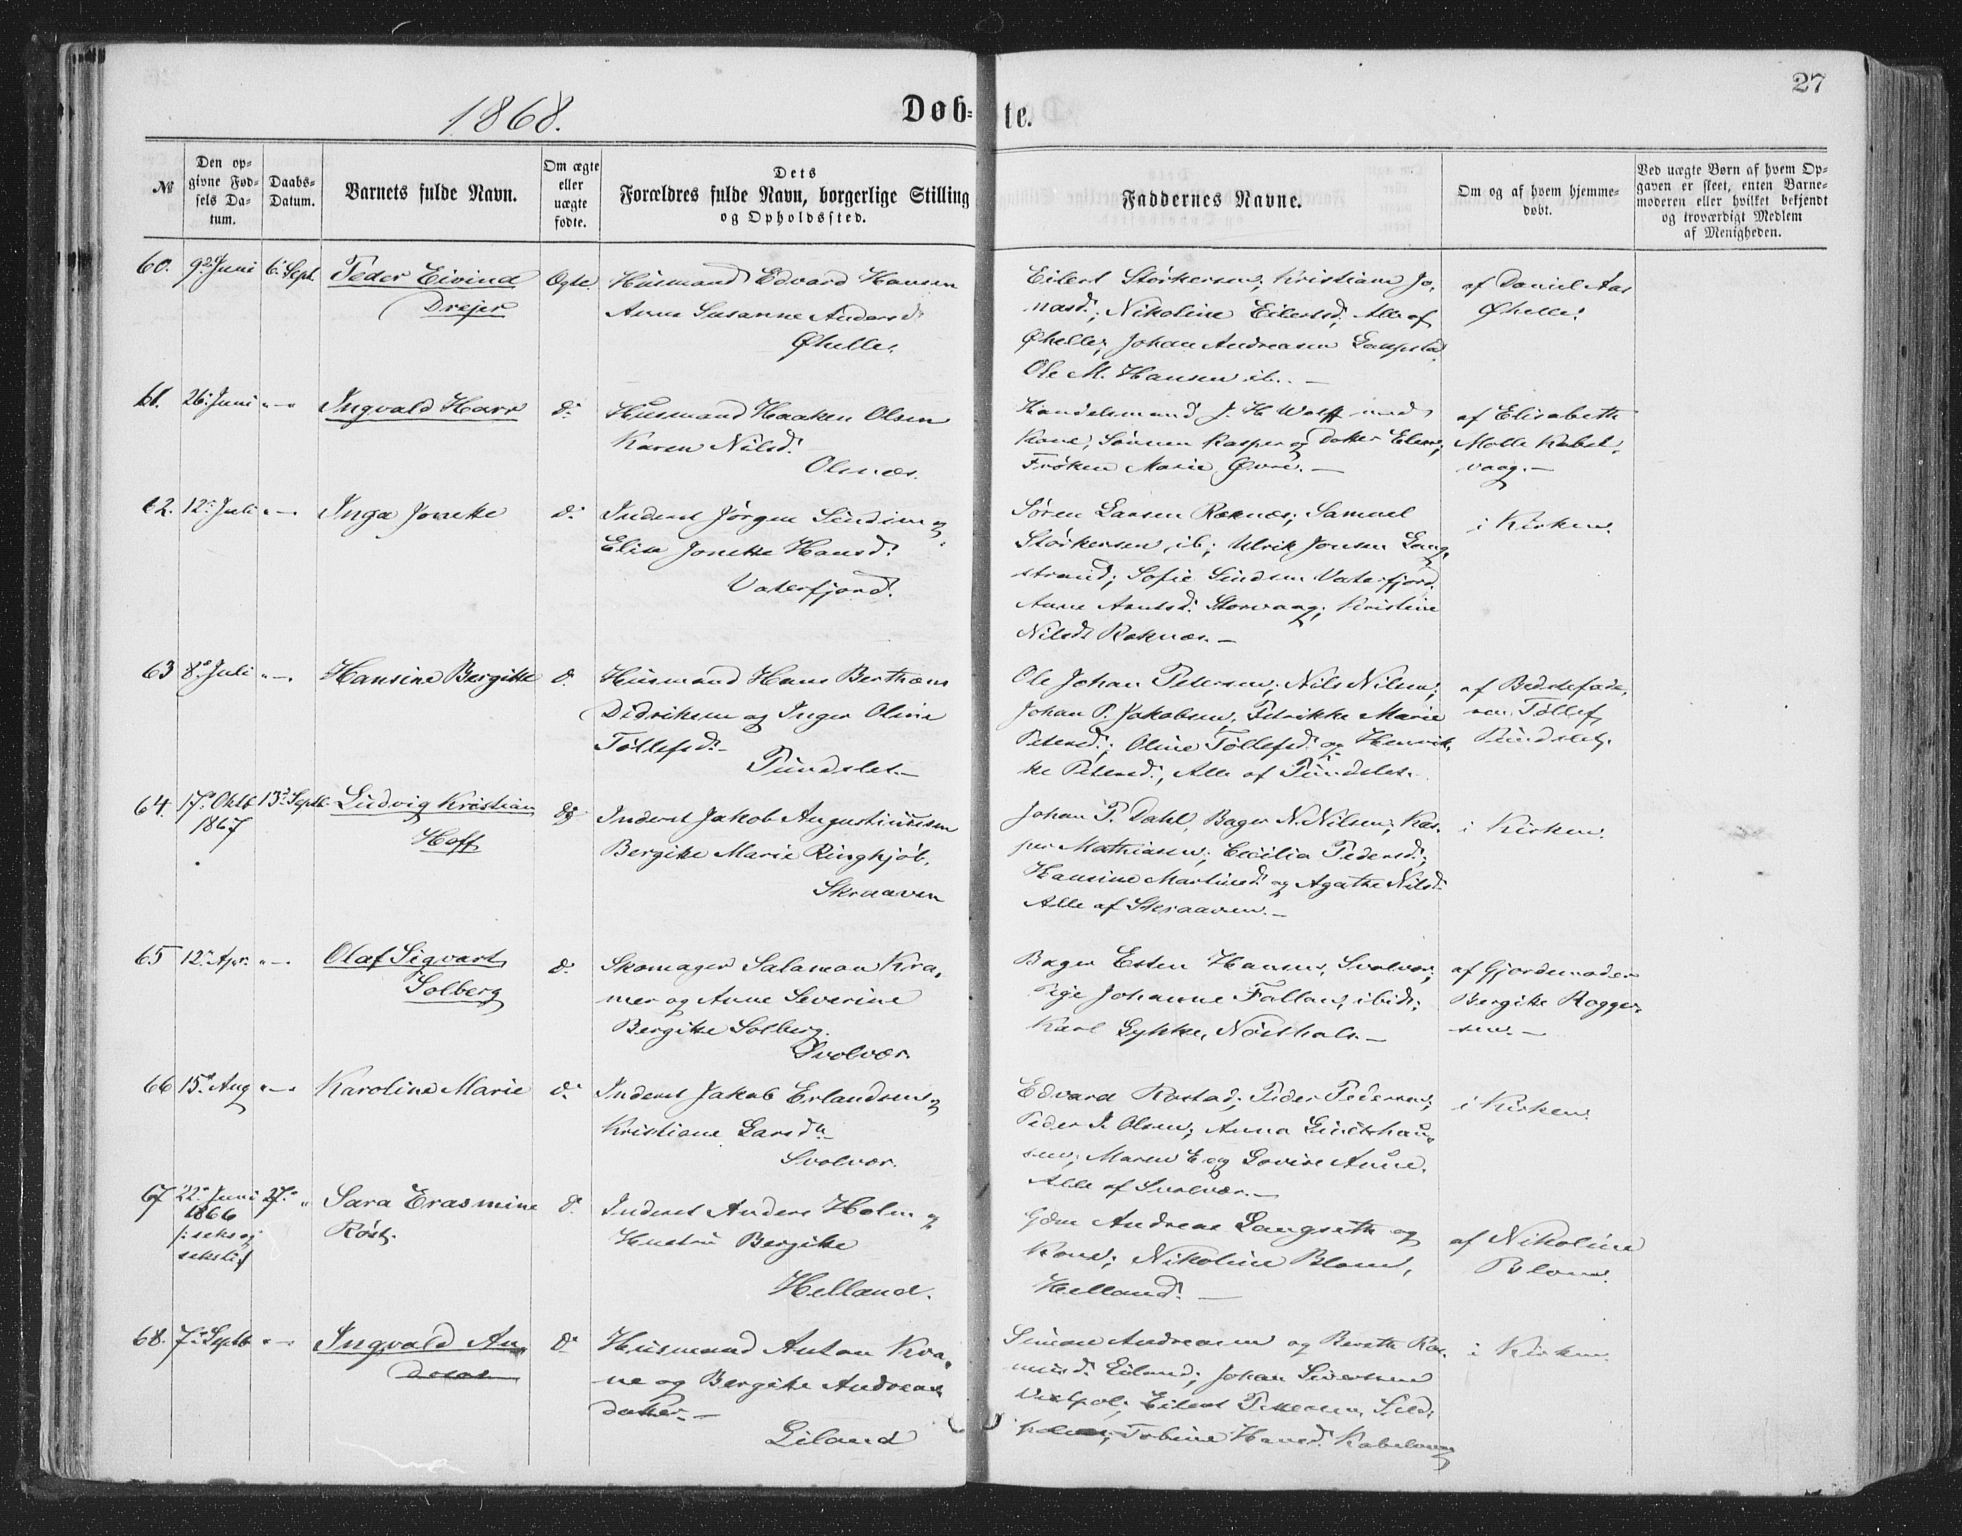 27
1868.
Døbte.
№
Den opgivne Fødsels Datum.
Daabs-Datum.
Barnets fulde Navn.
Om ægte eller uægte fødte.
Dets
Forældres fulde Navn, borgerlige Stilling
og Opholdssted.
Faddernes Navne.
Om og af hvem hjemmedøbt.
Ved uægte Børn af hvem Opgaven er skeet, enten Barnemoderen eller hvilket bekjendt og troværdigt Medlem af Menigheden.
60. 9de Juni 6. Sept. Peder Eivind Ægte Husmand Edvard Hansen
Drejer Anne Susanne Andersd.
Øhelle.
Eilert Størkersen, Kristiane Jo-
nasd., Nikoline Eilertsd. Alle af
Øhelle, Johan Andreasen
Ole M. Hansen ib. —
af Daniel Aas
Øhelle.
61. 26. Juni " — " Ingvald Harr d. Husmand Haaken Olsen
Karen Nilsd.
Olsnæs.
Handelsmand J. H. Wolff med
Kone, Sønnen Kasper og Datter
Frøken Marie Øvre. —
af Elisabeth
Molle Kabel-
vaag. —
62. 12. Juli " — Inga Jonette d. Inderst Jørgen og
Elise Jonette Hansd.
Vaterfjord.
Søren Larsen Roknæs, Samuel
Størkersen ib; Ulrik Jonsen Lang-
strand; Sofie Vaterfjord.
Anne Arntsd. Storvaag; Kristine
Nilsd. Roknæs. —
i Kirken.
63 8. Juli " — Hansine Bergitte d. Husmand Hans Berthæus
Didriksen og Inger Oline
Tøllefsd. —
Pundslet. —
Ole Johan Petersen, Nils Nilsen,
Johan P. Jakobsen, Petrikke Marie
Petersd., Oline Tøllefsd. og Henrik-
ke Petersd., Alle af Pundslet.
af Beddefade-
ren Tøllef
Pundslet.
64. 17. Oktb. 13. Septb. Ludvig Kristian Inderst Jakob Augustinussen
1867 Hoff Bergitte Marie Ringkjøb.
Skraaven
Johan P. Dahl, Bager N. Nilsen, Kas-
per Mathiasen, Cecilia Pedersd.,
Hansine Martinsd. og Agathe Nilsd.
Alle af Skraaven. —
i Kirken.
65 12. Apr. " — Olaf Sigvart d. Skomager Salamon Kra-
Solberg mer og Anne Severine
Bergitte Solberg.
Svolvær.
Bager Esten Hansen, Svolvær;
Pige Johanne Falland, ibid;
Karl Lykke,
af Gjordemoder
Bergitte Rogger-
sen. —
66 15. Aug " — Karoline Marie d. Inderst Jakob Erlandsen og
Kristiane Larsd. —
Svolvær.
Edvard Rostad; Peder Pedersen;
Peder J. Olsen; Anna
sen; Maren E og Lovise Anne.
Alle af Svolvær. —
i Kirken.
67 22. Juni 27. " Sara Erasmine d. Inderst Anders Holm og
1866 Røst. Hustru Bergitte
/: seks og Helland.
sekstif
Gdm Andreas Langseth og
Kone; Nikoline Blom,
Helland. —
af Nikoline
Blom.
68. 7. Septb " — Ingvald An- d. Husmand Anton Kra-
dreas ne og Bergitte Andreas
datter. —
Liland
Simon Andreasen og Bereth Ras-
musd. Liland; Johan Sivertsen
Eilert Pettersen,
Tobine Hansd. Kabelvaag
i Kirken.